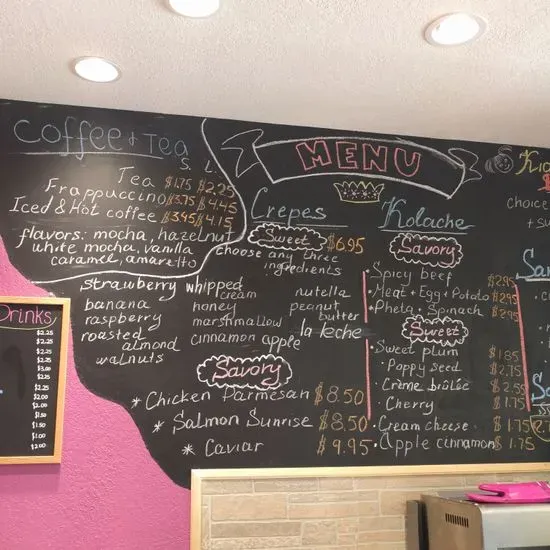 Coffee + Tea
S. L.
Tea $1.75 $2.25
Frappuccino $3.75 $4.45
Iced & Hot coffee $3.45 $4.15
flavors: mocha, hazelnut
white mocha, vanilla
caramel, amaretto
MENU
Crepes
Sweet $6.95
choose any three
ingredients
strawberry whipped cream nutella
banana honey peanut butter
raspberry marshmallow la leche
roasted almond cinnamon apple
walnuts
Savory
* Chicken Parmesan $8.50
* Salmon Sunrise $8.50
* Caviar $9.95
Kolache
Savory
• Spicy beef $2.95
• Meat + Egg + Potato $2.95
• Pheta + Spinach $2.95
Sweet
• Sweet plum $1.85
• Poppy seed $2.75
• Crème brûlée $2.55
• Cherry $1.75
• Cream cheese $1.75
• Apple cinnamon $1.75
choice
Drinks
$2.25
$2.25
$2.25
$2.25
$3.00
$2.25
$2.00
$2.00
$2.00
$1.50
$1.50
$1.00
$2.00